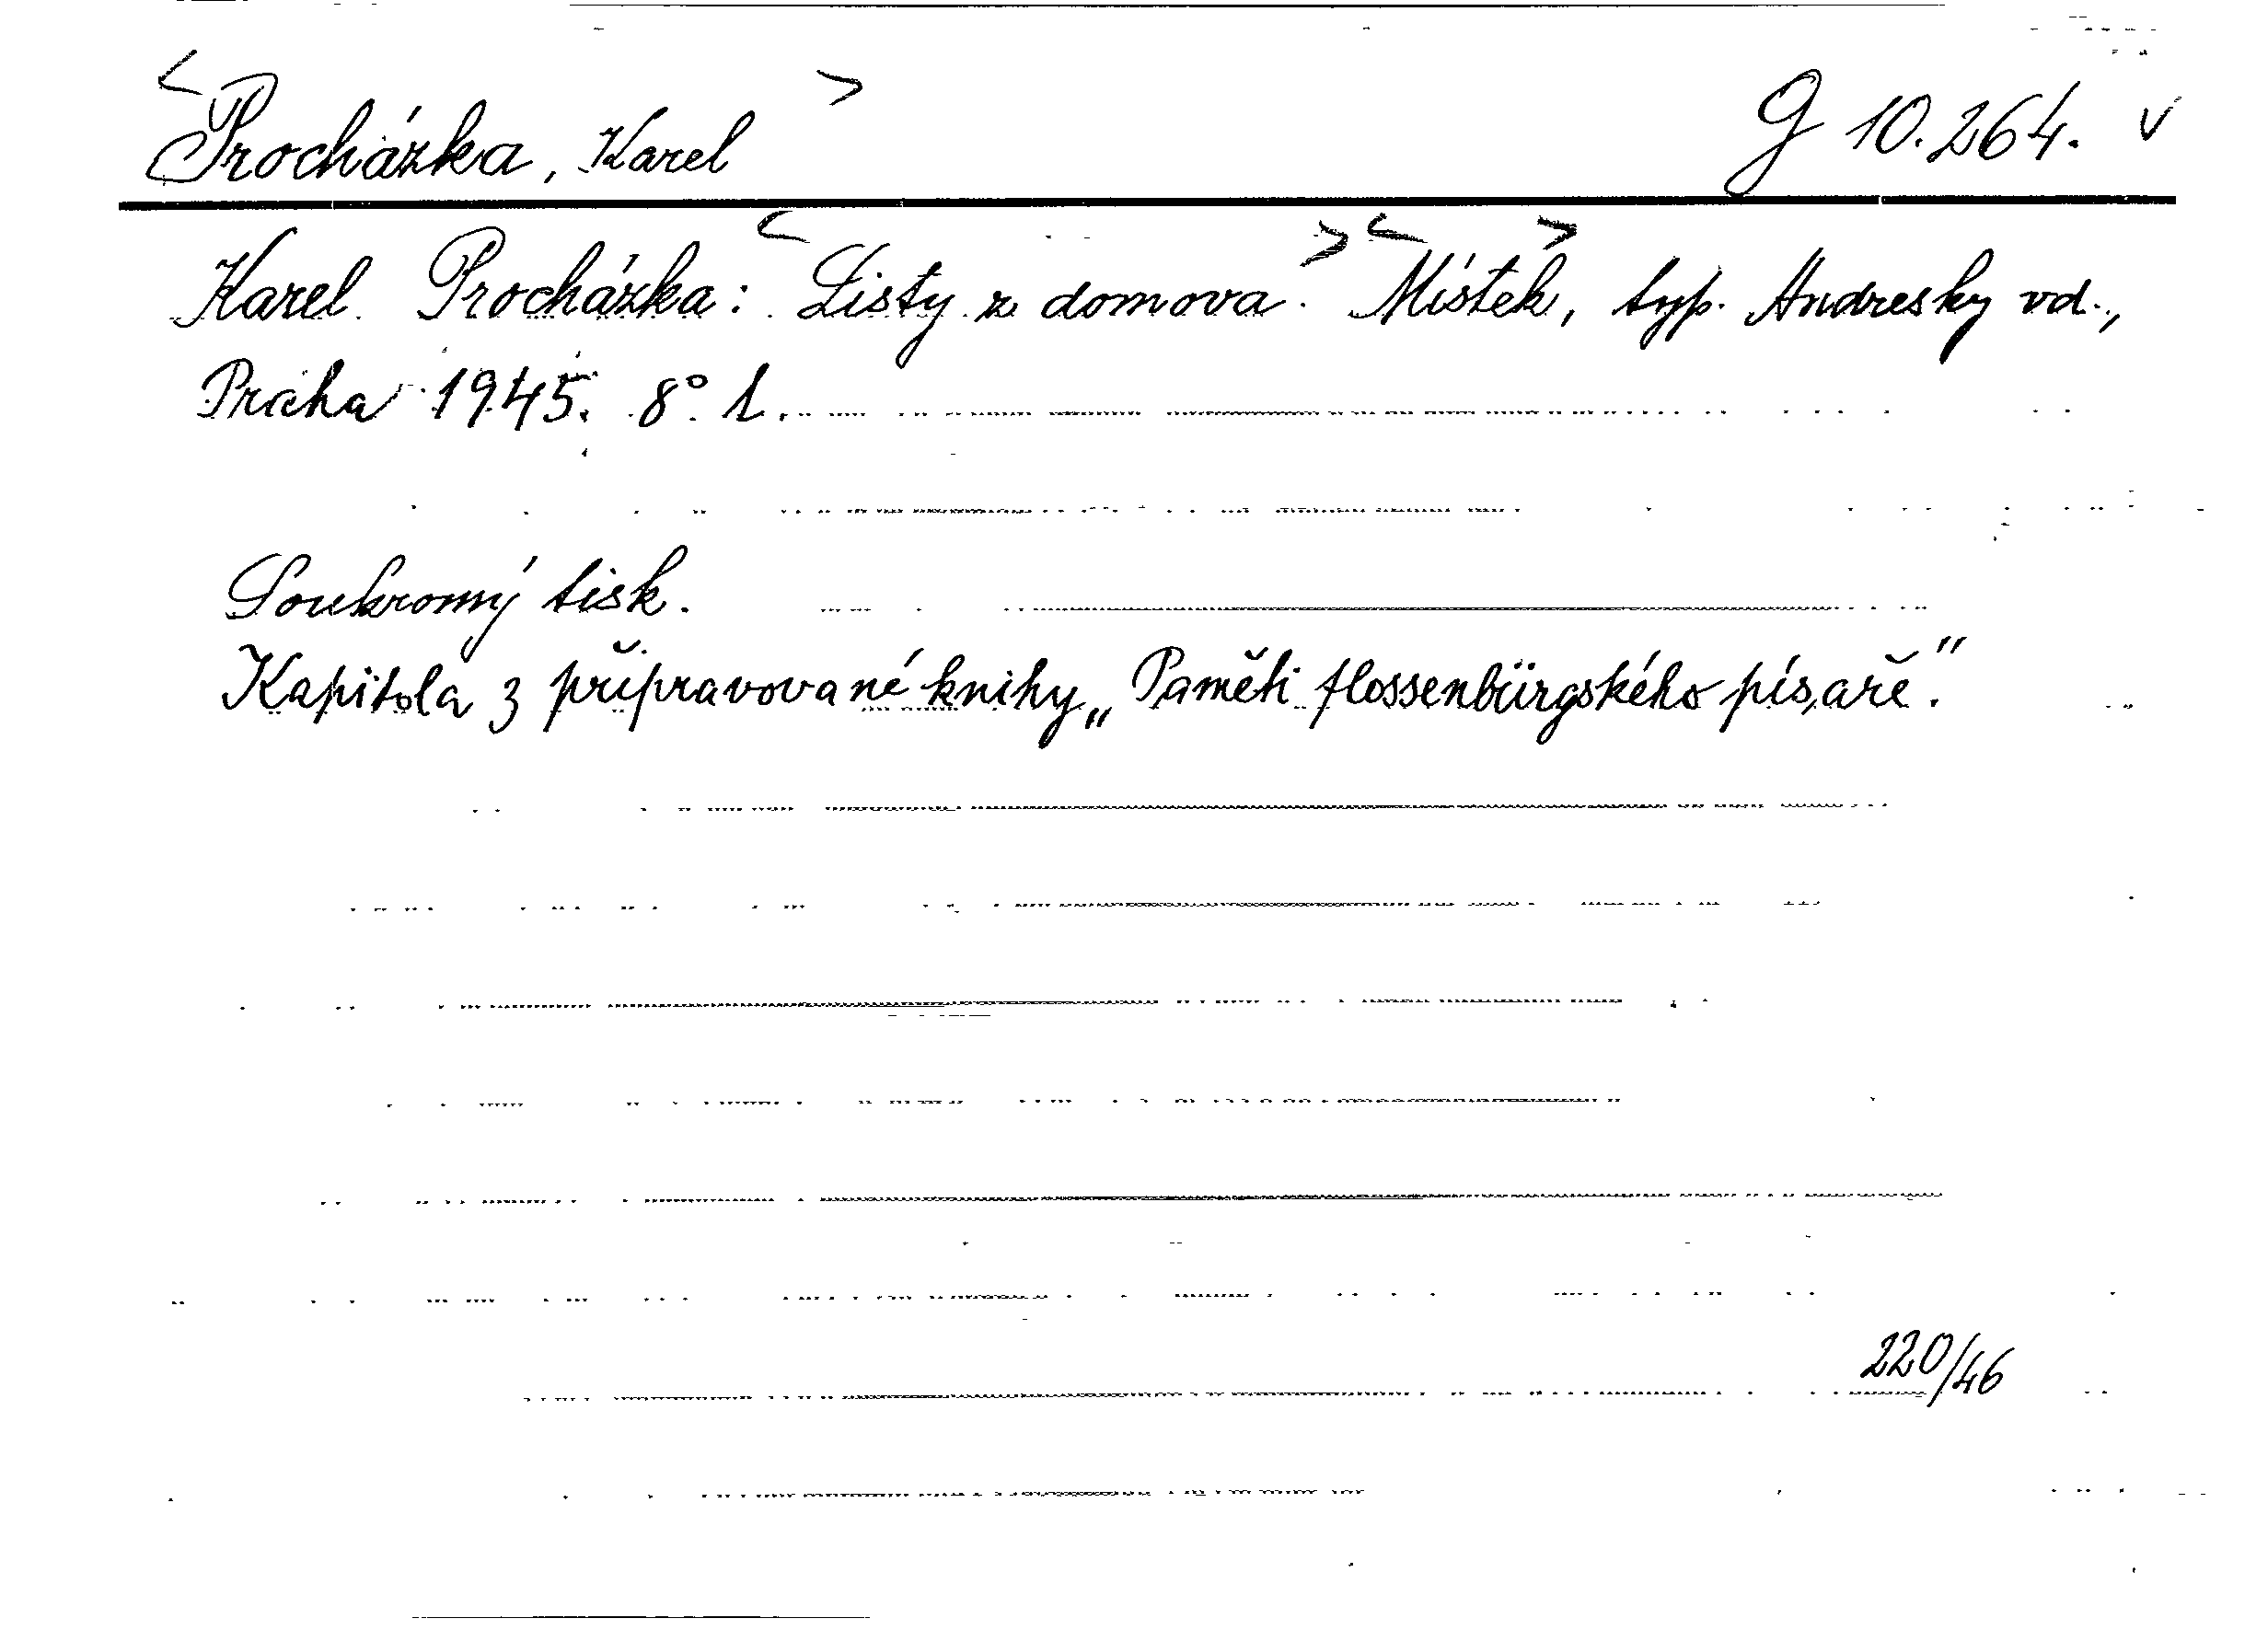 <Procházka, Karel> G 10.264. v
Karel Procházka: <Listy z domova.> <Místek>, typ. Andresky vd.,
Praha 1945. 8° 1.
Soukromý tisk.
Kapitola z připravované knihy „Paměti flossenbürgského písaře."
220/46